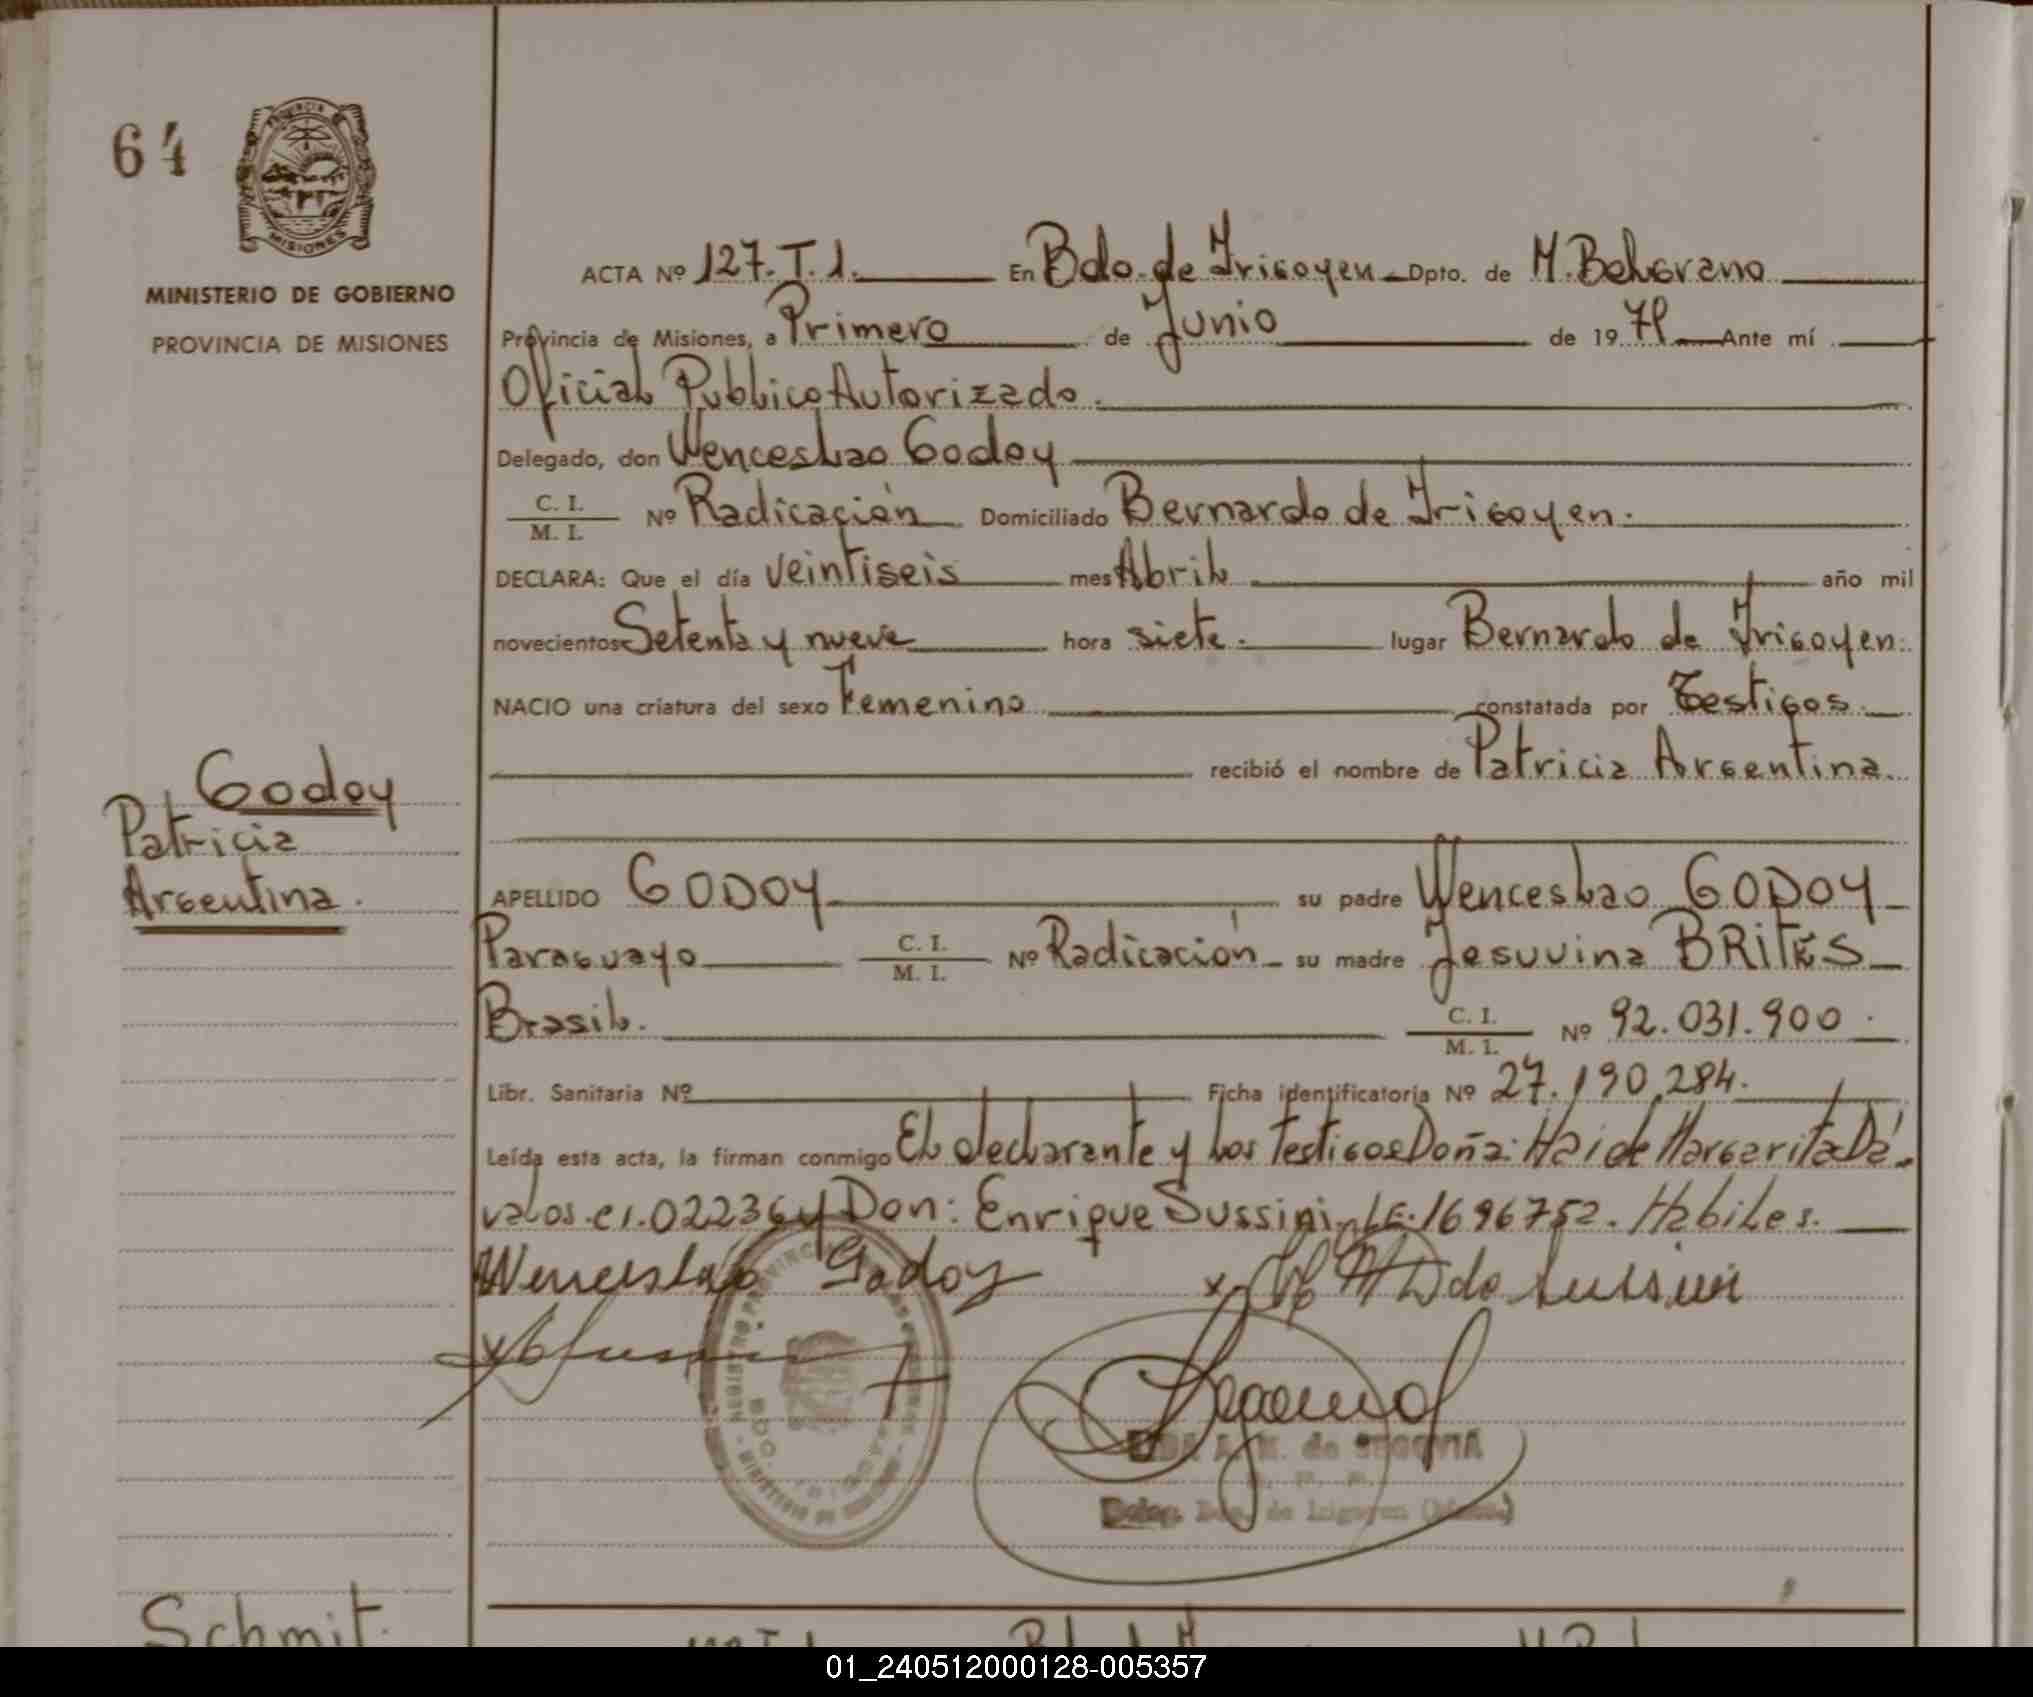 64
PROVINCIA
MISIONES
MINISTERIO DE GOBIERNO
PROVINCIA DE MISIONES
ACTA Nº 127. T. 1. En Bdo. de Irigoyen Dpto. de M. Belgrano
Provincia de Misiones, a Primero de Junio de 1979 Ante mí
Oficial Publico Autorizado.
Delegado, don Wenceslao Godoy
C. I.
M. I. Nº Radicación Domiciliado Bernardo de Irigoyen.
DECLARA: Que el día veintiseis mes Abril año mil
novecientos Setenta y nueve hora siete. lugar Bernardo de Irigoyen.
NACIO una criatura del sexo Femenino constatada por Testigos.
recibió el nombre de Patricia Argentina.
Godoy
Patricia
Argentina.
APELLIDO GODOY su padre Wenceslao GODOY
Paraguayo C. I. M. I. Nº Radicación su madre Jesuvina BRITES
Brasil. C. I. M. I. Nº 92.031.900.
Libr. Sanitaria Nº Ficha identificatoria Nº 27.190.284.
Leída esta acta, la firman conmigo El declarante y los Testigos Doña: Haide Margarita Dá-
valos. C I. 02236 y Don: Enrique Sussini. L E. 1696752. Habiles.
Wenceslao Godoy
A. M. de SEGOVIA
Deleg. Bdo. de Irigoyen
Schmit
01_240512000128-005357